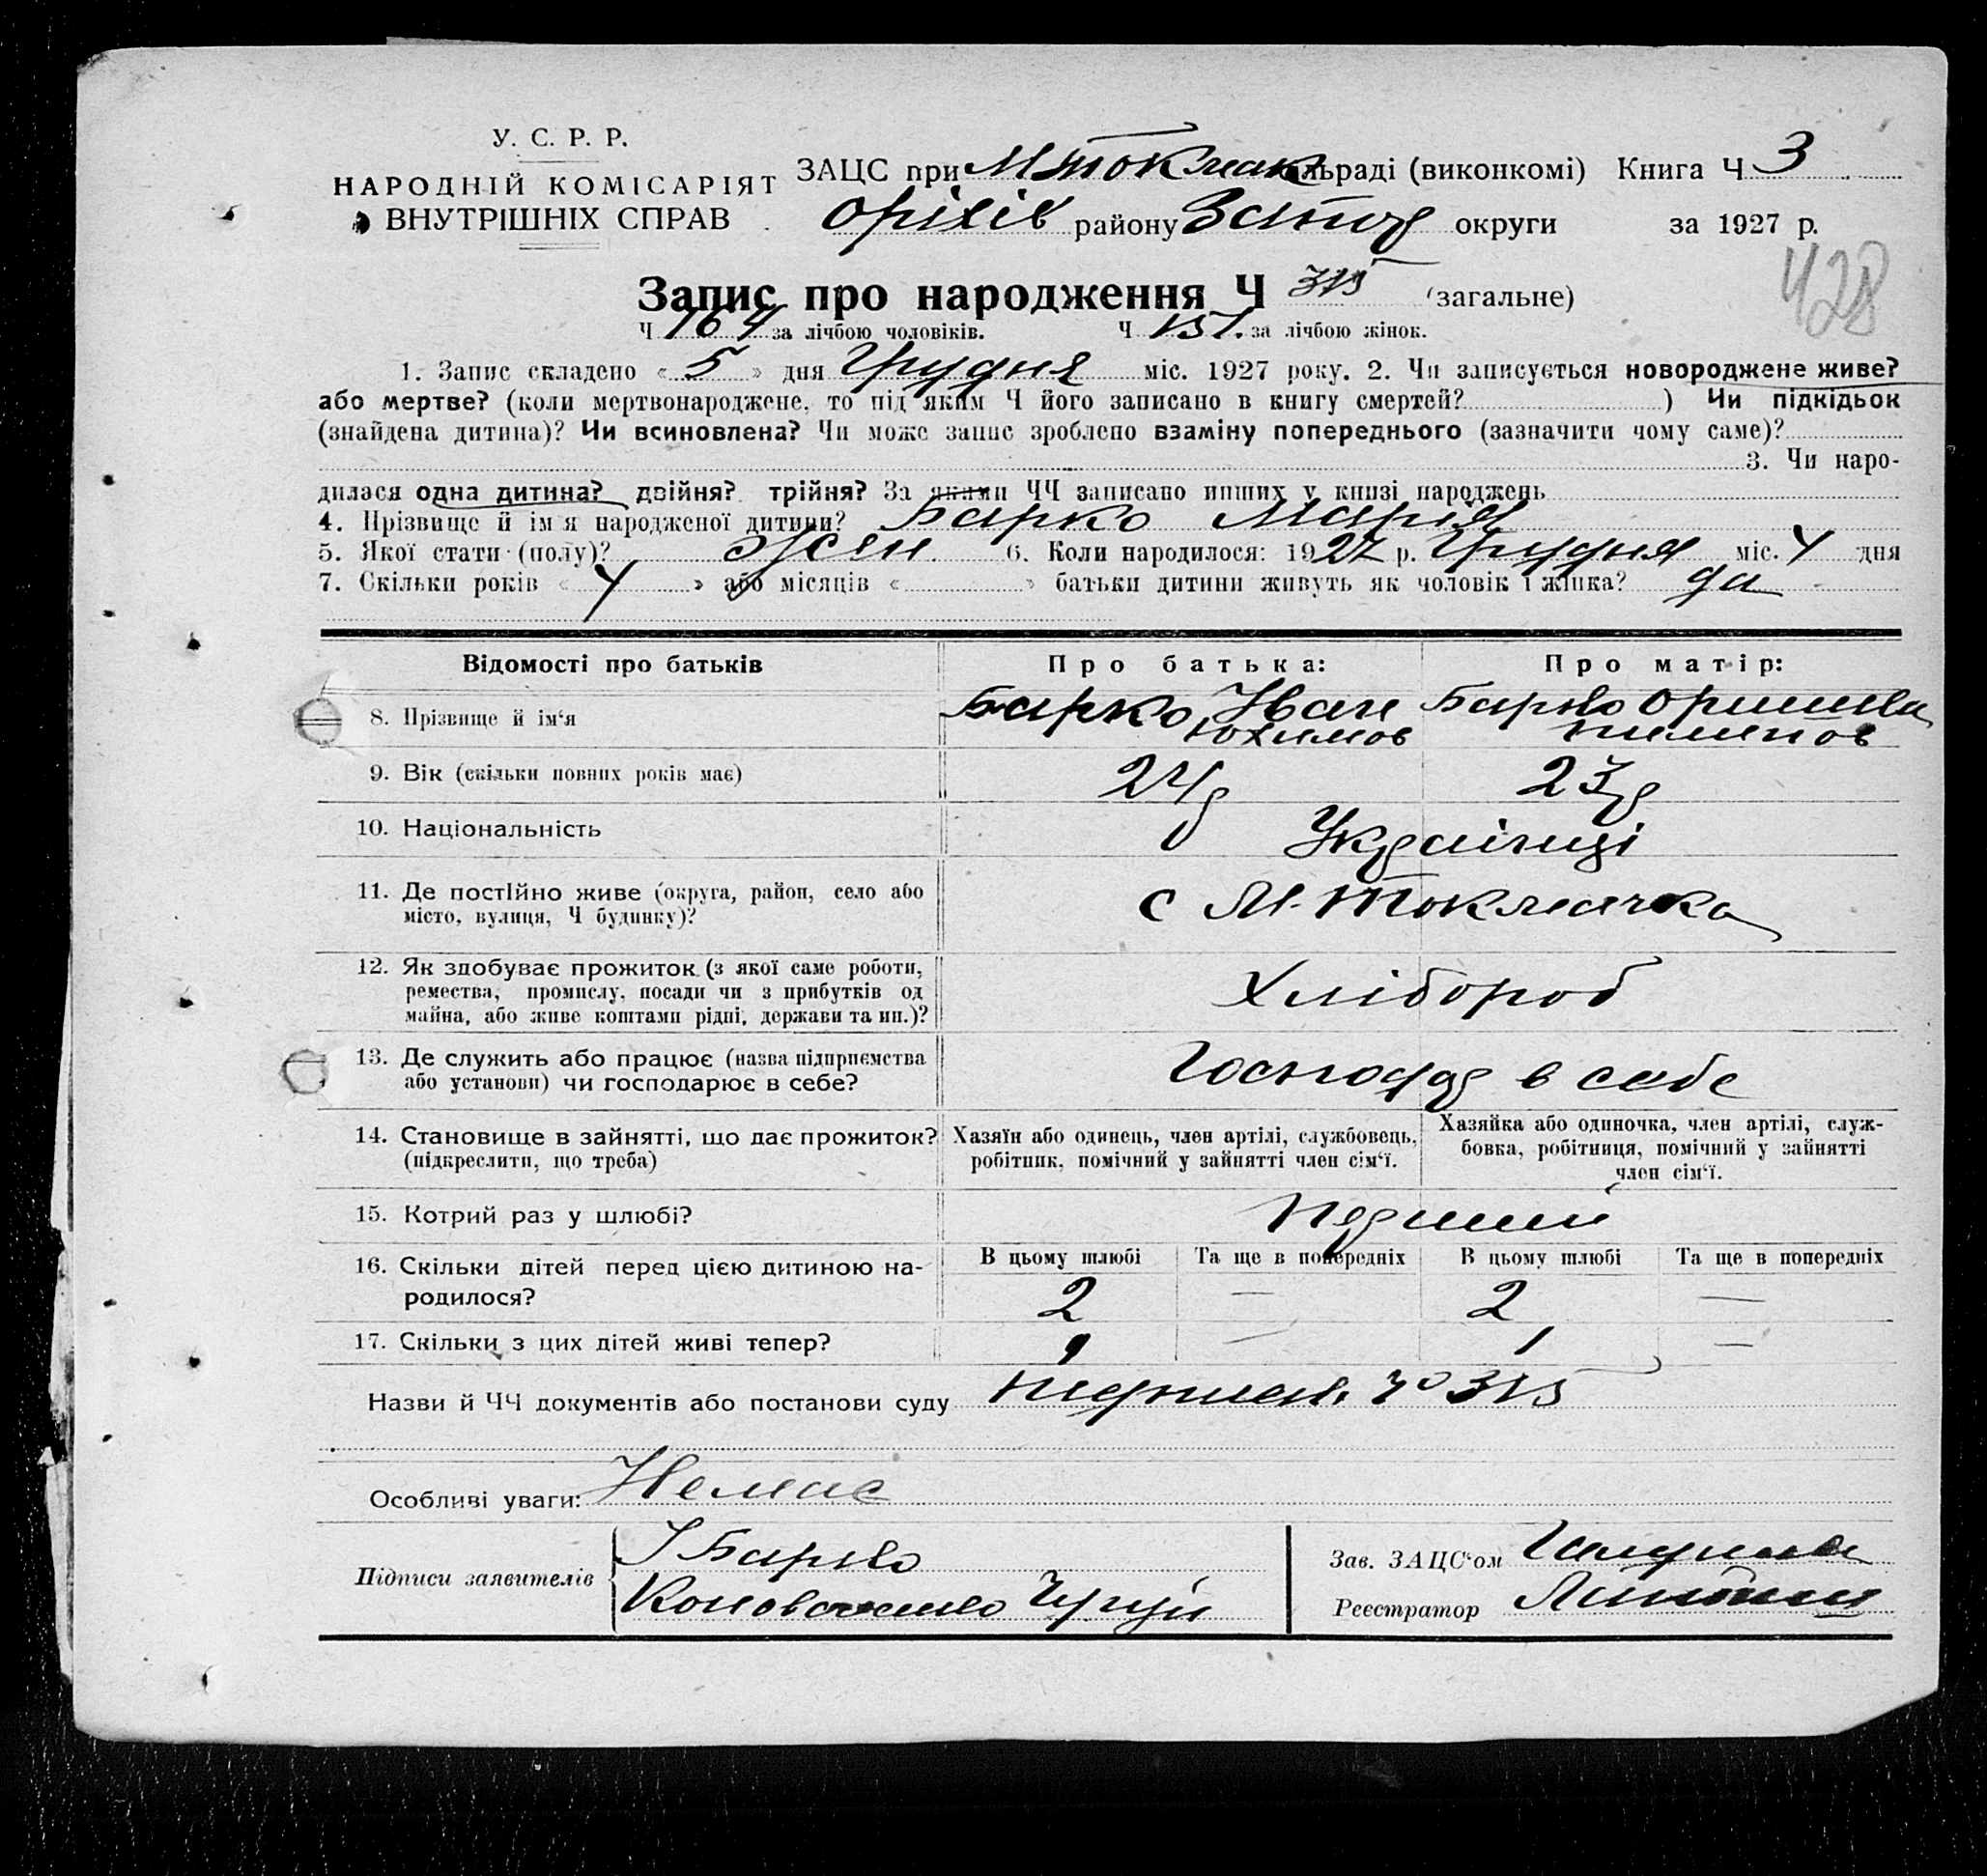 У. С. Р. Р.
НАРОДНІЙ КОМІСАРІЯТ
ВНУТРІШНІХ СПРАВ
ЗАЦС при М Токмак льраді (виконкомі) Книга Ч 3
Оріхів району Запор округи за 1927 р.
428
Запис про народження Ч 315 (загальне)
Ч 164 за лічбою чоловіків. Ч 151. за лічбою жінок.
1. Запис складено « 5 » дня Грудня міс. 1927 року. 2. Чи записується новороджене живе?
або мертве? (коли мертвонароджене, то під яким Ч його записано в книгу смертей? ) Чи підкідьок
(знайдена дитина)? Чи всиновлена? Чи може запис зроблено взаміну попереднього (зазначити чому саме)?
3. Чи наро-
дилася одна дитина? двійня? трійня? За якими ЧЧ записано инших у книзі народжень
4. Прізвище й ім'я народженої дитини? Барко Марія
5. Якої стати (полу)? Жен 6. Коли народилося: 1927 р. Грудня міс. 4 дня
7. Скільки років « 4 » або місяців « » батьки дитини живуть як чоловік і жінка? да
Відомості про батьків Про батька: Про матір:
8. Прізвище й ім'я Барко Іван Барко
Юхимов
9. Вік (скільки повних років має) 24р 23р
10. Національність Українці
11. Де постійно живе (округа, район, село або
місто, вулиця, Ч будинку)? с М-Токмачка
12. Як здобуває прожиток (з якої саме роботи,
ремества, промислу, посади чи з прибутків од
майна, або живе коштами рідні, держави та ин.)? Хлібороб
13. Де служить або працює (назва підприємства
або установи) чи господарює в себе? Господар в себе
14. Становище в зайнятті, що дає прожиток?
(підкреслити, що треба)
Хазяїн або одинець, член артілі, службовець,
робітник, помічний у зайнятті член сім'ї.
Хазяйка або одиночка, член артілі, служ-
бовка, робітниця, помічний у зайнятті
член сім'ї.
15. Котрий раз у шлюбі?
16. Скільки дітей перед цією дитиною на-
родилося?
В цьому шлюбі Та ще в попередніх В цьому шлюбі Та ще в попередніх
2 — 2 —
17. Скільки з цих дітей живі тепер? 1 — 1 —
Назви й ЧЧ документів або постанови суду 315
Особливі уваги: Немає
Підписи заявителів І Барко
Зав. ЗАЦС'ом
Реєстратор